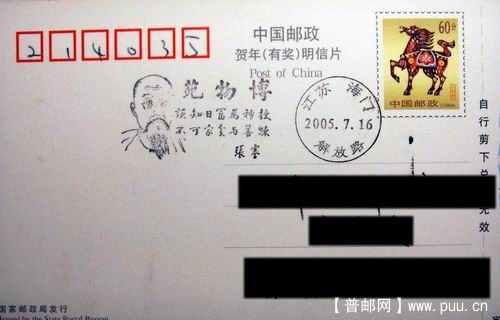 214035
中国邮政
贺年(有奖)明信片
Post of China
60分
中国邮政 CHINA
苑物博
须知日富为神授
不可家贫与善疎
张謇
江苏 海门
2005.7.16
解放路
自行剪下
无效
国家邮政局发行
Issued by the State Postal Bureau
【普邮网】www.puu.cn